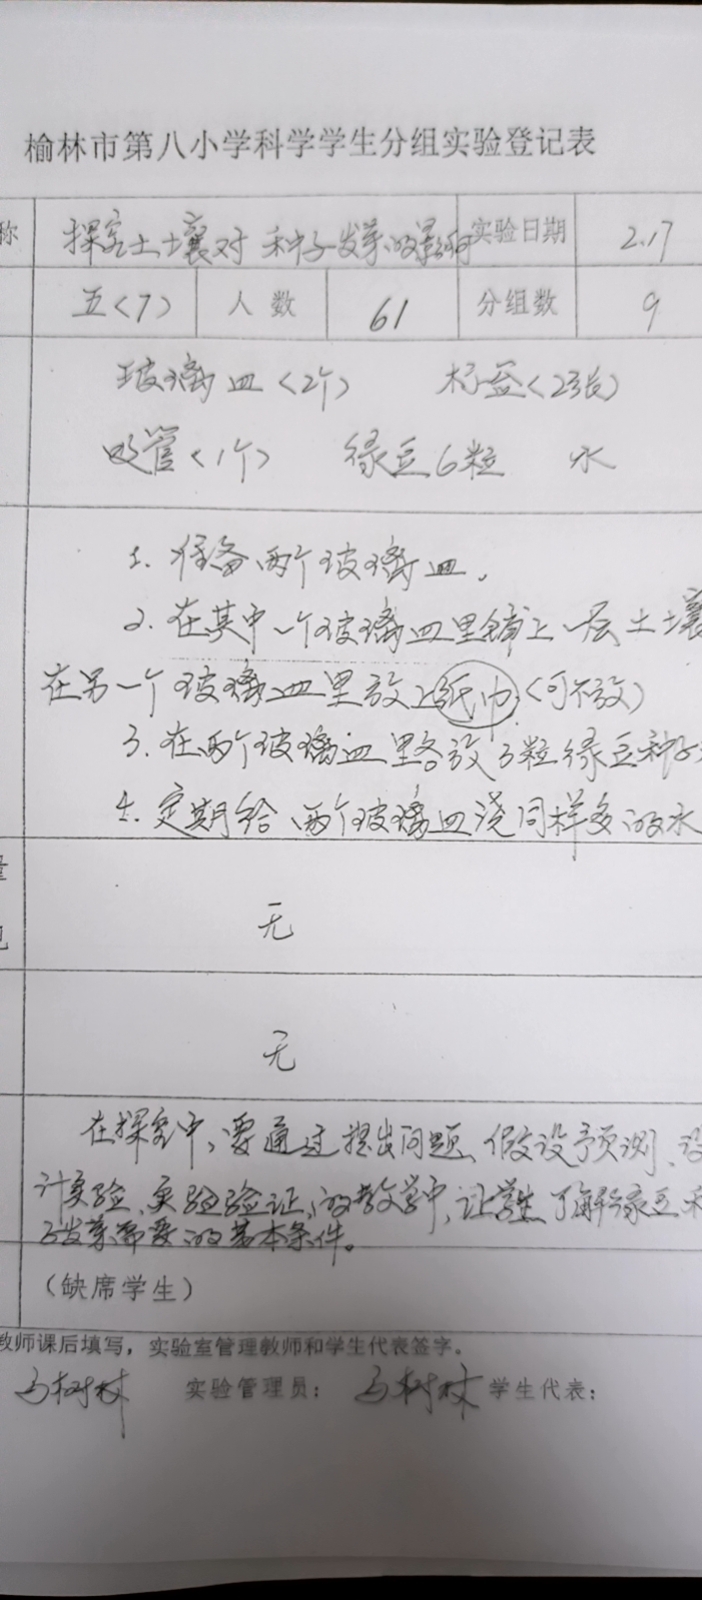 榆林市第八小学科学学生分组实验登记表
称 探究土壤对种子发芽的影响 实验日期 2.17
五<7> 人数 61 分组数 9
玻璃皿<2个> <2张>
吸管<1个> 绿豆6粒 水
1.准备两个玻璃皿。
2.在其中一个玻璃皿里铺上一层土壤
在另一个玻璃皿里放上纸巾(可不放)
3.在两个玻璃皿里各放3粒绿豆种子
4.定期给两个玻璃皿浇同样多的水
量
无
见
无
在探究中,要通过提出问题、假设预测、设
计实验、实验验证的教学中,让学生了解绿豆种
子发芽需要的基本条件。
(缺席学生)
教师课后填写,实验室管理教师和学生代表签字。
马树林 实验管理员: 马树林 学生代表: